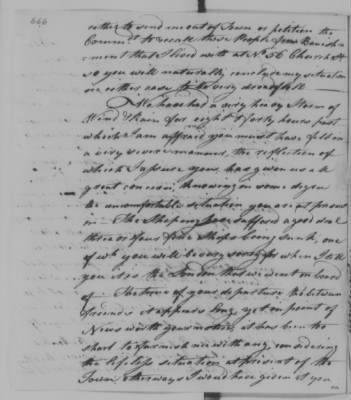 666
either to send me out of Town or petition the
Comm.t to recall these People from Banish-
ment that I lived with at No. 56 Church St
so you will naturally conclude my situation
on either case to be very disagreeable
We have had a very heavy Storm of
Wind & Rain for eight & forty hours past
which I am affraid you must have felt in
a very severe manner, the reflection of
which I assure you, has given us all
great concern, knowing in some degree
the uncomfortable situation you are at present
in - The Shiping have suffered a good deal
three or four fine Ships being sunk, one
of wh. you will be very sorry for when I tell
you it is the London that we went on board
of - The time of your departure tho between
friends it appears long, yet in point of
News worth your notice, it has been too
short to furnish me with any, considering
the lifeless situation at present of the
Town, otherways I would have given it you